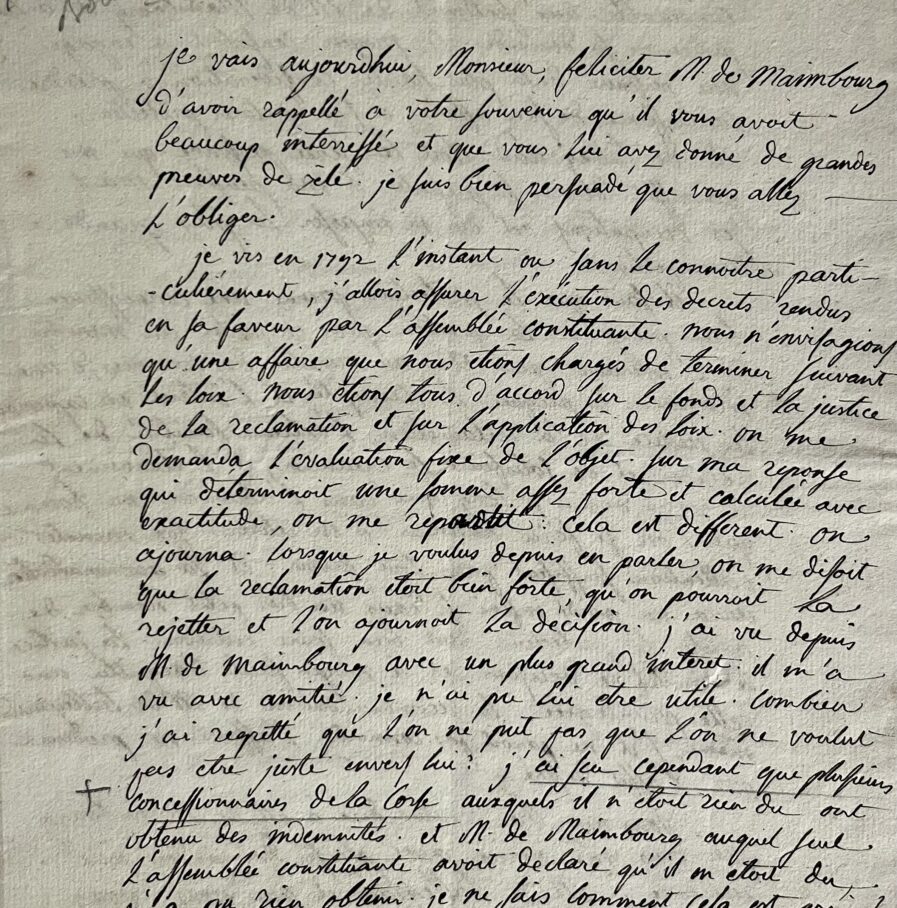 je vais aujourdhui, Monsieur, feliciter M. de Maimbourg
d'avoir rappellé à votre souvenir qu'il vous avoit
beaucoup interressé et que vous lui avez donné de grandes
preuves de zèle. je suis bien persuadé que vous allez
L'obliger.
je vis en 1792 l'instant ou sans le connoitre parti-
-culiérement, j'allois assurer l'exécution des decrets rendus
en sa faveur par l'assemblée constituante. nous n'envisagions
qu'une affaire que nous étions chargés de terminer suivant
les loix. nous étions tous d'accord sur le fonds et la justice
de la reclamation et sur l'application des loix. on me
demanda l'évaluation fixe de l'objet. sur ma reponse
qui determinoit une somme assez forte et calculée avec
exactitude, on me repartit: cela est different. on
ajourna. lorsque je voulus depuis en parler, on me disoit
que la reclamation étoit bien forte, qu'on pourroit la
rejetter et l'on ajournoit la décision. j'ai vu depuis
M. de Maimbourg avec un plus grand interet. il m'a
vu avec amitié. je n'ai pu lui etre utile. combien
j'ai regretté que l'on ne put pas que l'on ne voulut
pas etre juste envers lui? j'ai scu cependant que plusieurs
concessionnaires de la Corse auxquels il n'étoit rien du ont
obtenu des indemnités. et M. de Maimbourg auquel seul
L'assemblée constituante avoit declaré qu'il en étoit du,
n'a pu rien obtenir. je ne sais comment cela est